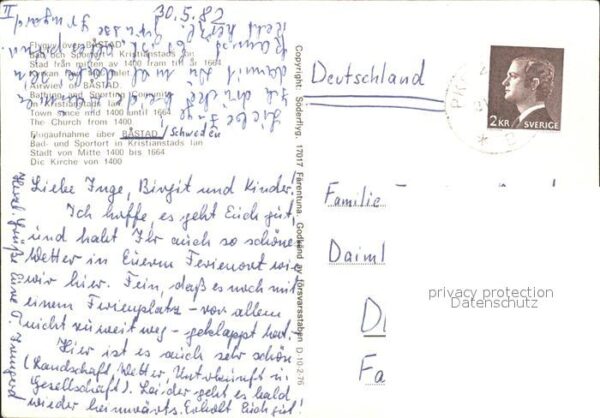 II
30.5.82
Flygvy över BÅSTAD.
Bad och Sportort i Kristianstads län
Stad från mitten av 1400 fram till år 1664
Airwiev of BÅSTAD.
Bathing and Sporting Comunity
in Kristianstad län
Town since mid 1400 until 1664
The Church from 1400.
Flugaufnahme über BÅSTAD /Schweden
Bad- und Sportort in Kristianstads län
Stadt von Mitte 1400 bis 1664
Die Kirche von 1400
Liebe Inge, Birgit und Kinder!
Ich hoffe, es geht Euch gut,
und habt Ihr auch so schönes
Wetter in Euerm Ferienort wie
wir hier. Fein, daß es noch mit
einem Ferienplatz - vor allem
nicht zu weit weg - geklappt hat.
Hier ist es auch sehr schön
(Landschaft, Wetter, Unterkunft u.
Gesellschaft). Leider geht es bald
wieder heimwärts. Erholt Euch gut!
Herzl. Grüße Eure Irmgard
Copyright: Söderflyg. 17017 Färentuna. Godkänd av försvarsstaben D-10-2-76
Deutschland
2 KR SVERIGE
Familie
Daiml
D
Fa
privacy protection
Datenschutz